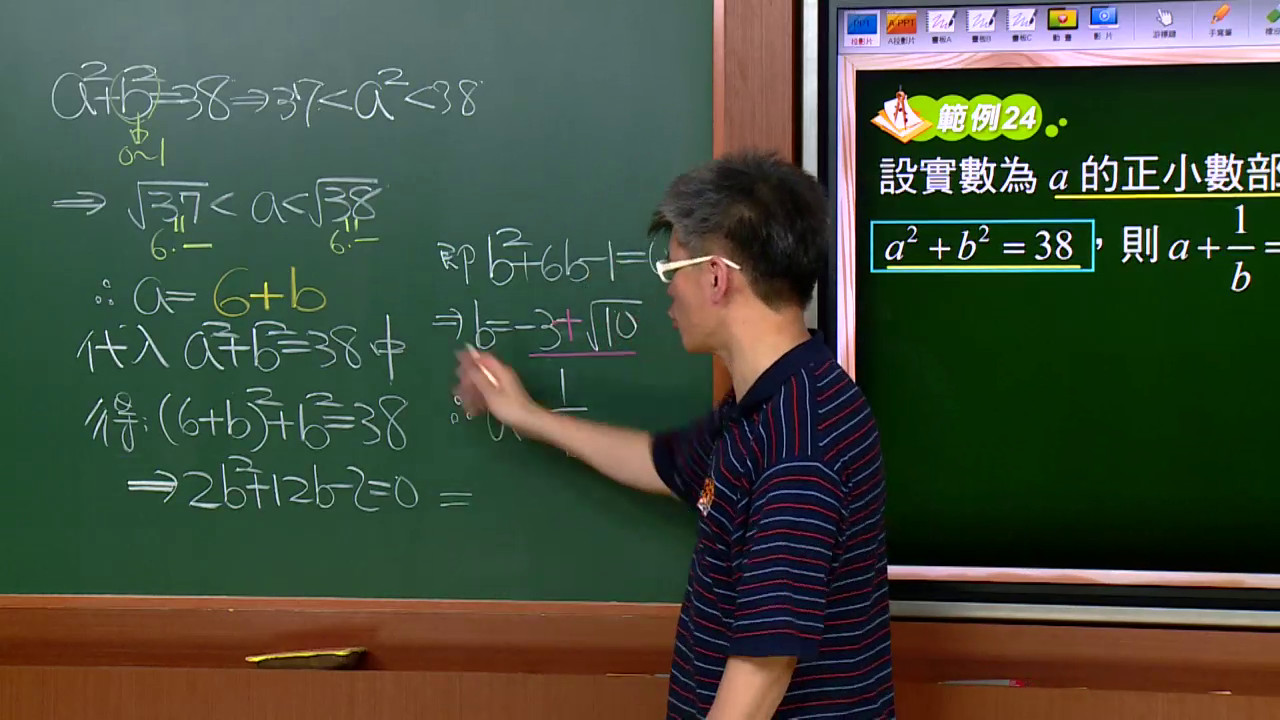 a²+b²=38⇒37<a²<38
0~1
⇒ √37 < a<√38
6.— 6.—
∴ a= 6+b
代入 a²+b²=38中
得:(6+b)²+b²=38
⇒2b²+12b-2=0
即 b²+6b-1=
⇒b=-3+√10
∴ a 1
=
投影片 A投影片 畫板A 畫板B 畫板C 動畫 影片 游標鍵 手電筆
範例24
設實數為 a 的正小數部
a² + b² = 38,則 a + 1/b =